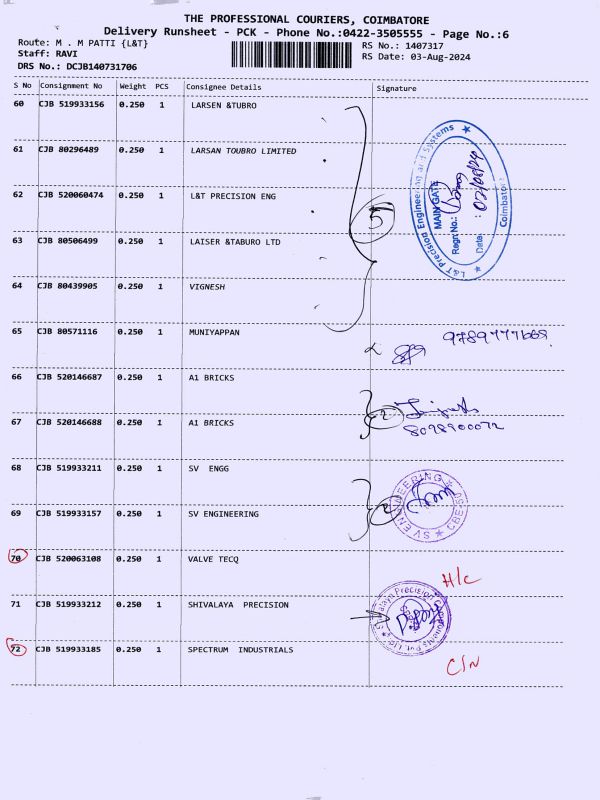 THE PROFESSIONAL COURIERS, COIMBATORE
Delivery Runsheet - PCK - Phone No.:0422-3505555 - Page No.:6
Route: M . M PATTI {L&T}
RS No.: 1407317
Staff: RAVI
RS Date: 03-Aug-2024
DRS No.: DCJB140731706
S No Consignment No Weight PCS Consignee Details Signature
60 CJB 519933156 0.250 1 LARSEN &TUBRO
61 CJB 80296489 0.250 1 LARSAN TOUBRO LIMITED
62 CJB 520060474 0.250 1 L&T PRECISION ENG
63 CJB 80506499 0.250 1 LAISER &TABURO LTD
64 CJB 80439905 0.250 1 VIGNESH
5
L&T Precision Engineering and Systems
MAIN GATE
Regn No.:
Date :
Coimbatore
65 CJB 80571116 0.250 1 MUNIYAPPAN
66 CJB 520146687 0.250 1 A1 BRICKS
67 CJB 520146688 0.250 1 A1 BRICKS
2
8098900072
68 CJB 519933211 0.250 1 SV ENGG
69 CJB 519933157 0.250 1 SV ENGINEERING
2
SV ENGINEERING
70 CJB 520063108 0.250 1 VALVE TECQ
H/C
71 CJB 519933212 0.250 1 SHIVALAYA PRECISION
Shivalaya Precision Components Pvt. Ltd.
72 CJB 519933185 0.250 1 SPECTRUM INDUSTRIALS
C/N